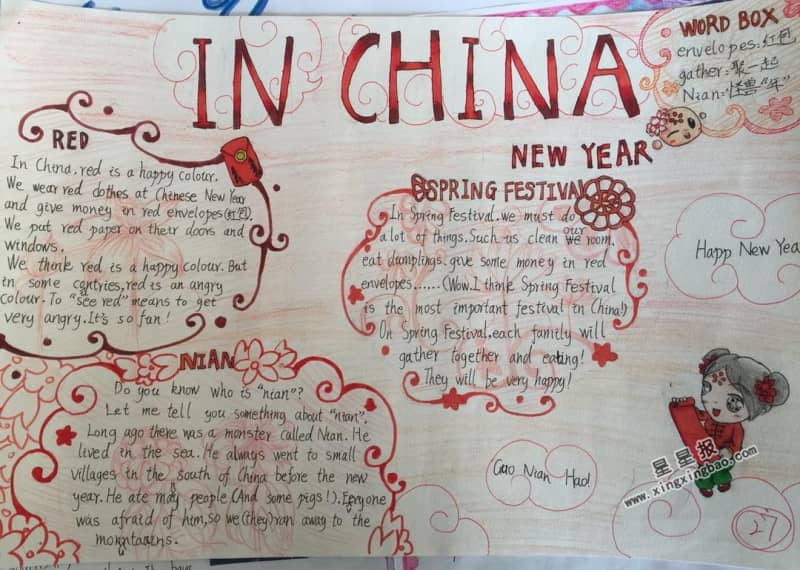 IN CHINA
WORD BOX
envelopes:红包
gather:聚一起
Nian:怪兽"年"
NEW YEAR
RED
In China.red is a happy colour.
We wear red clothes at Chinese New Year
and give money in red envelopes(红包).
We put red paper on their doors and
windows.
We think red is a happy colour. But
in some contries,red is an angry
colour. To "see red" means to get
very angry.It's so fun!
SPRING FESTIVAL
In Spring Festival.we must do
a lot of things.Such us clean our room,
eat dumplings.give some money in red
envelopes......(Wow.I think Spring Festival
is the most important festival in China!)
On Spring Festival.each family will
gather together and eating!
They will be very happy!
Happy New Year
NIAN
Do you know who is "nian"?
Let me tell you something about "nian".
Long ago there was a monster called Nian. He
lived in the sea. He always went to small
villages in the south of China before the new
year. He ate may people (And some pigs!). Everyone
was afraid of him, so we(they)ran away to the
mountains.
Gao Nian Hao!
星星报
www.xingxingbao.com
27